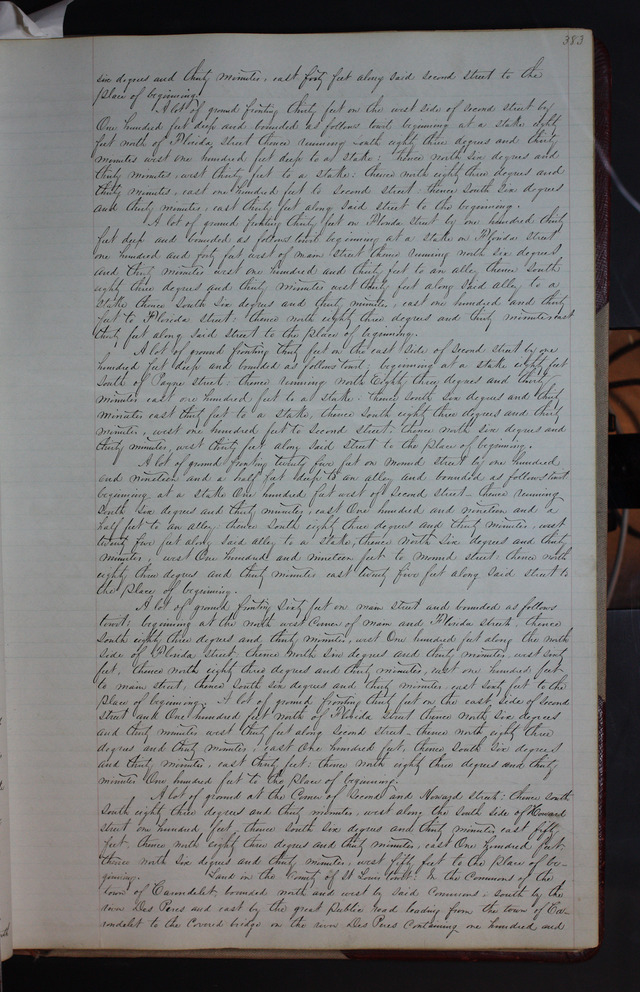 383
six degrees and thirty minutes, east forty feet along said second street to the
place of beginning.
A lot of ground fronting thirty feet on the west side of second street by
One hundred feet deep and bounded as follows towit beginning at a stake eighty
feet north of Florida street thence running south eighty three degrees and thirty
minutes west one hundred feet deep to a stake; thence north six degrees and
thirty minutes, west thirty feet to a stake: thence north eighty three degrees and
thirty minutes, east one hundred feet to second street thence south six degrees
and thirty minutes, east thirty feet along said street to the beginning.
A lot of ground fronting thirty feet on Florida street by one hundred thirty
feet deep and bounded as follows towit beginning at a stake on Florida street
one hundred and forty feet west of main street thence running north six degrees
and thirty minutes west one hundred and thirty feet to an alley thence south
eighty three degrees and thirty minutes west thirty feet along said alley to a
stake thence south six degrees and thirty minutes, east one hundred and thirty
feet to Florida street: thence north eighty three degrees and thirty minutes east
thirty feet along said street to the place of beginning.
A lot of ground fronting thirty feet on the east side of second street by one
hundred feet deep and bounded as follows towit, beginning at a stake eighty feet
south of Payne street: thence running north eighty three degrees and thirty
minutes east one hundred feet to a stake. thence south six degrees and thirty
minutes east thirty feet to a stake, thence south eighty three degrees and thirty
minutes, west one hundred feet to second street; thence north six degrees and
thirty minutes, west thirty feet along said street to the place of beginning.
A lot of ground fronting twenty five feet on mound street by one hundred
and nineteen and a half feet deep to an alley and bounded as follows towit
beginning at a stake One hundred feet west of second street - thence running
south six degrees and thirty minutes, east One hundred and nineteen and a
half feet to an alley thence south eighty three degrees and thirty minutes, west
twenty five feet along said alley to a stake, thence north six degrees and thirty
minutes, west One hundred and nineteen feet to mound street: thence north
eighty three degrees and thirty minutes east twenty five feet along said street to
the place of beginning.
A lot of ground fronting sixty feet on main street and bounded as follows
towit; beginning at the north west corner of main and Florida streets, thence
south eighty three degrees and thirty minutes, west One hundred feet along the north
side of Florida street, thence north six degrees and thirty minutes, west sixty
feet, thence north eighty three degrees and thirty minutes, east one hundred feet
to main street, thence south six degrees and thirty minutes east sixty feet to the
place of beginning. A lot of ground fronting thirty feet on the east side of second
street and One hundred feet north of Florida street thence North six degrees
and thirty minutes west thirty feet along second street - thence north eighty three
degrees and thirty minutes, east One hundred feet, thence south six degrees
and thirty minutes, east thirty feet: thence north eighty three degrees and thirty
minutes One hundred feet to the place of beginning.
A lot of ground at the corner of second and Howard streets: thence south
south eighty three degrees and thirty minutes, west along the south side of Howard
street one hundred feet, thence south six degrees and thirty minutes east fifty
feet, thence north eighty three degrees and thirty minutes, east One hundred feet.
thence north six degrees and thirty minutes, west fifty feet to the place of be-
ginning. Land in the County of St Louis towit: In the Commons of the
town of Carondelet, bounded north and west by said commons, south by the
river Des Peres and east by the great public road leading from the town of Ca-
rondelet to the covered bridge on the river Des Peres containing one hundred and